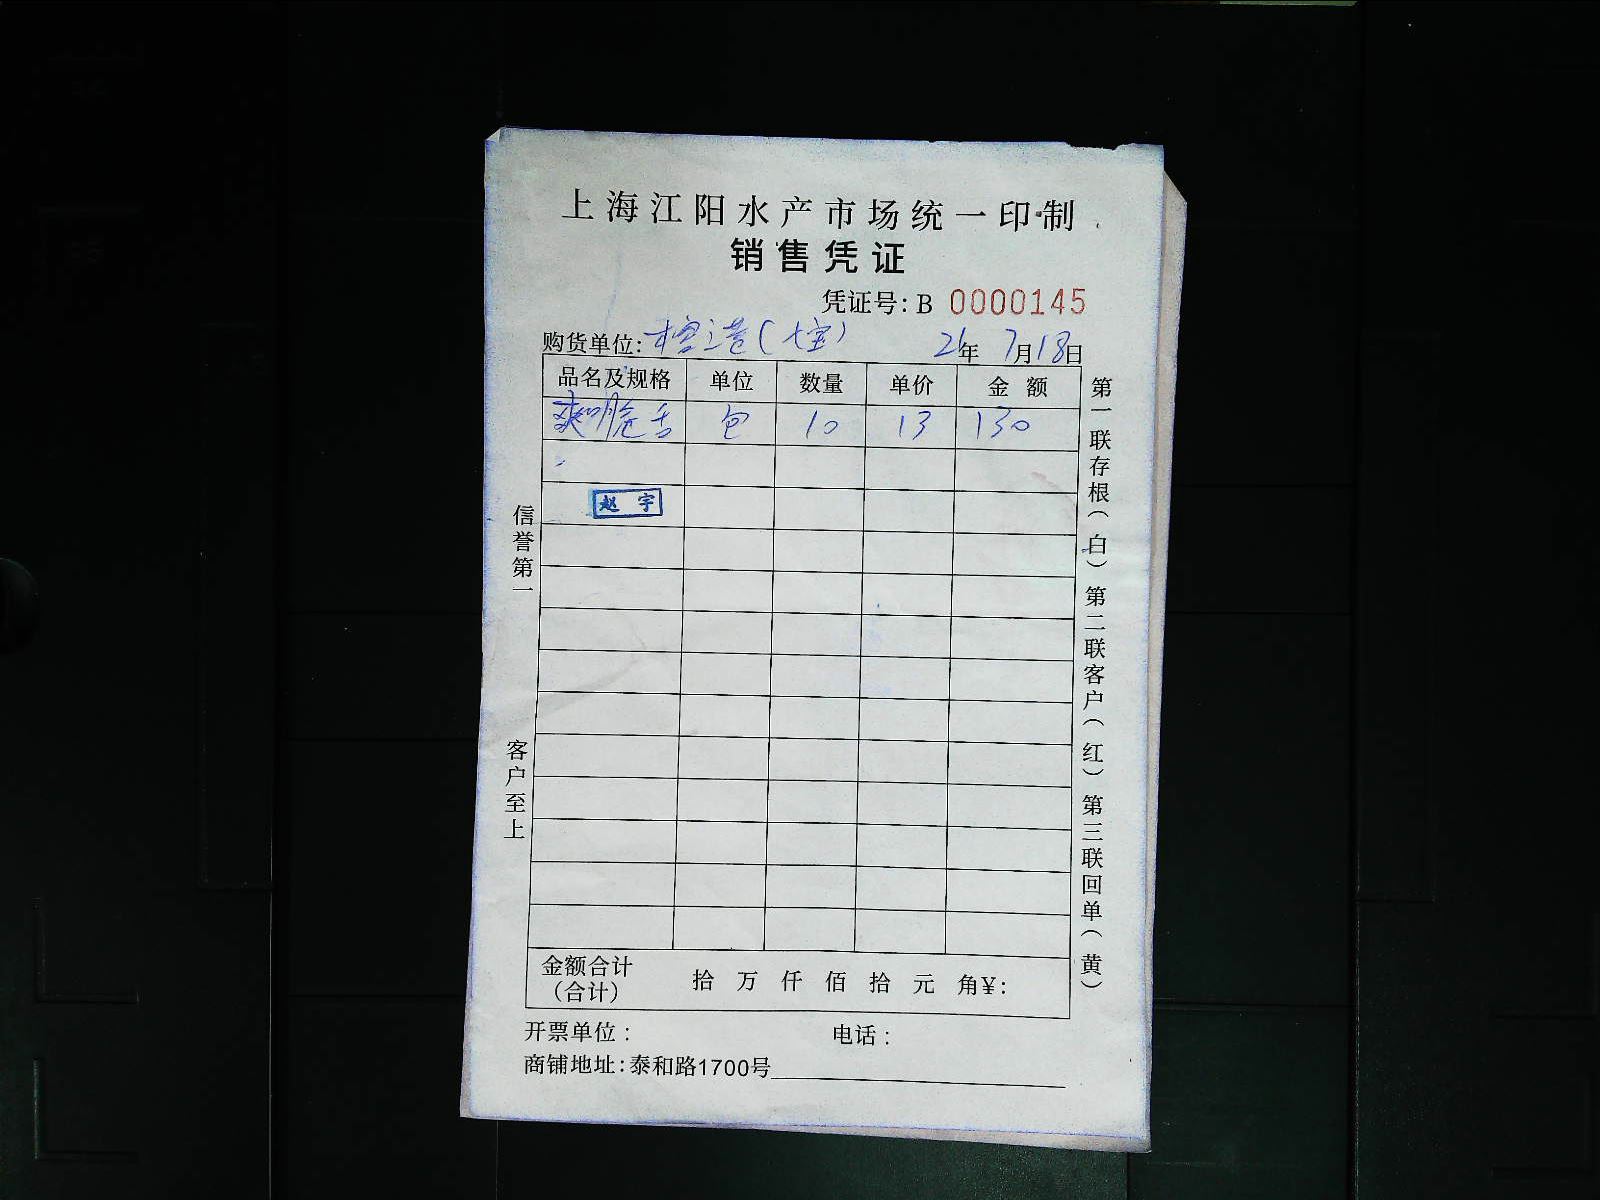 上海江阳水产市场统一印制
销售凭证
凭证号: B 0000145
购货单位: (七宝) 21年 7月18日
品名及规格 单位 数量 单价 金额
包 10 13 130
赵宇
信誉第一
客户至上
第一联存根(白) 第二联客户(红) 第三联回单(黄)
金额合计 拾 万 仟 佰 拾 元 角¥:
(合计)
开票单位: 电话:
商铺地址:泰和路1700号